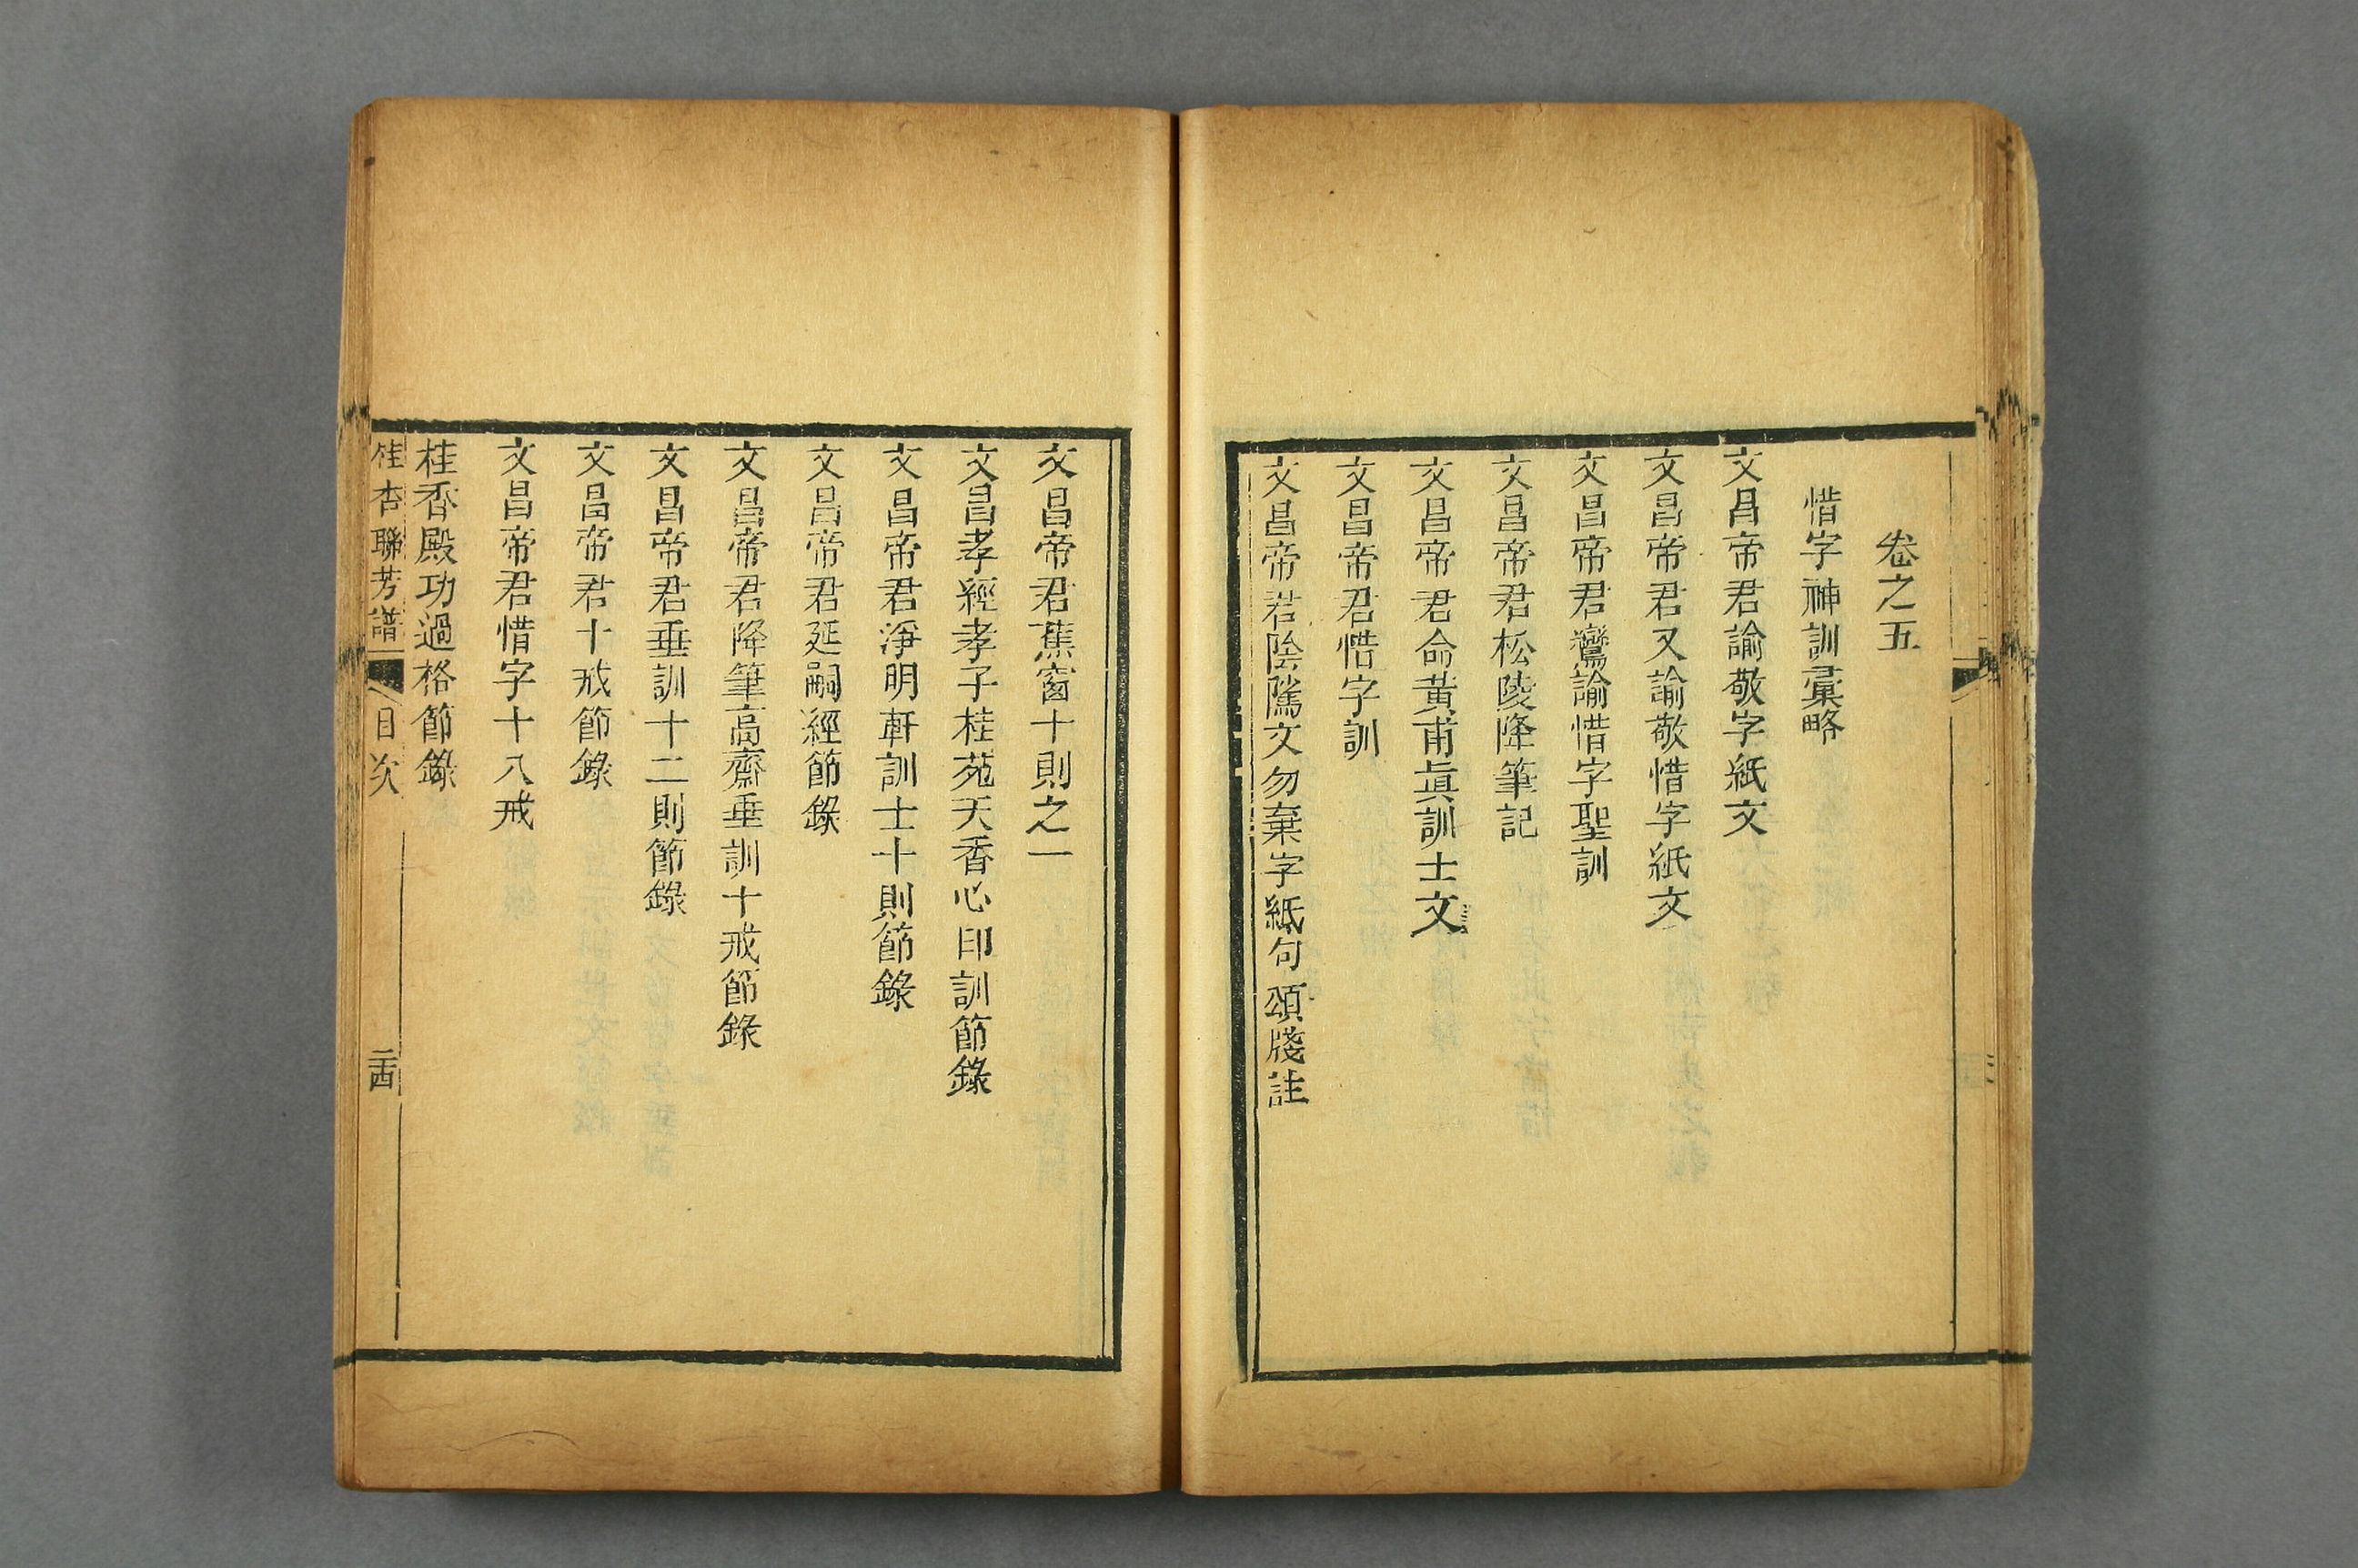 卷之五
惜字神訓彙略
文昌帝君諭敬字紙文
文昌帝君又諭敬惜字紙文
文昌帝君鸞諭惜字聖訓
文昌帝君松陵降筆記
文昌帝君命黄甫眞訓士文
文昌帝君惜字訓
文昌帝君陰隲文勿棄字紙句頌牋註
文昌帝君蕉窗十則之一
文昌孝經孝子桂苑天香心印訓節錄
文昌帝君淨明軒訓士十則節錄
文昌帝君延嗣經節錄
文昌帝君降筆高齋垂訓十戒節錄
文昌帝君垂訓十二則節錄
文昌帝君十戒節錄
文昌帝君惜字十八戒
桂香殿功過格節錄
桂杏聯芳譜 目次 二十四